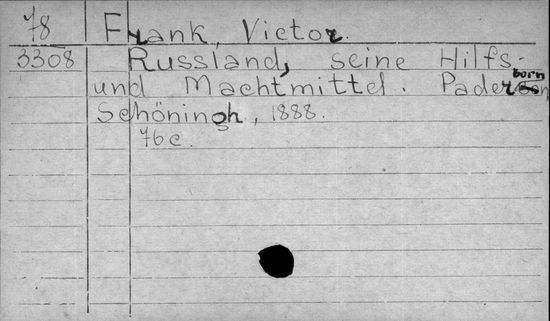 78 Frank, Victor.
3308 Russland, seine Hilfs-
und Machtmittel. Paderborn
Schöningh, 1888.
76 c.